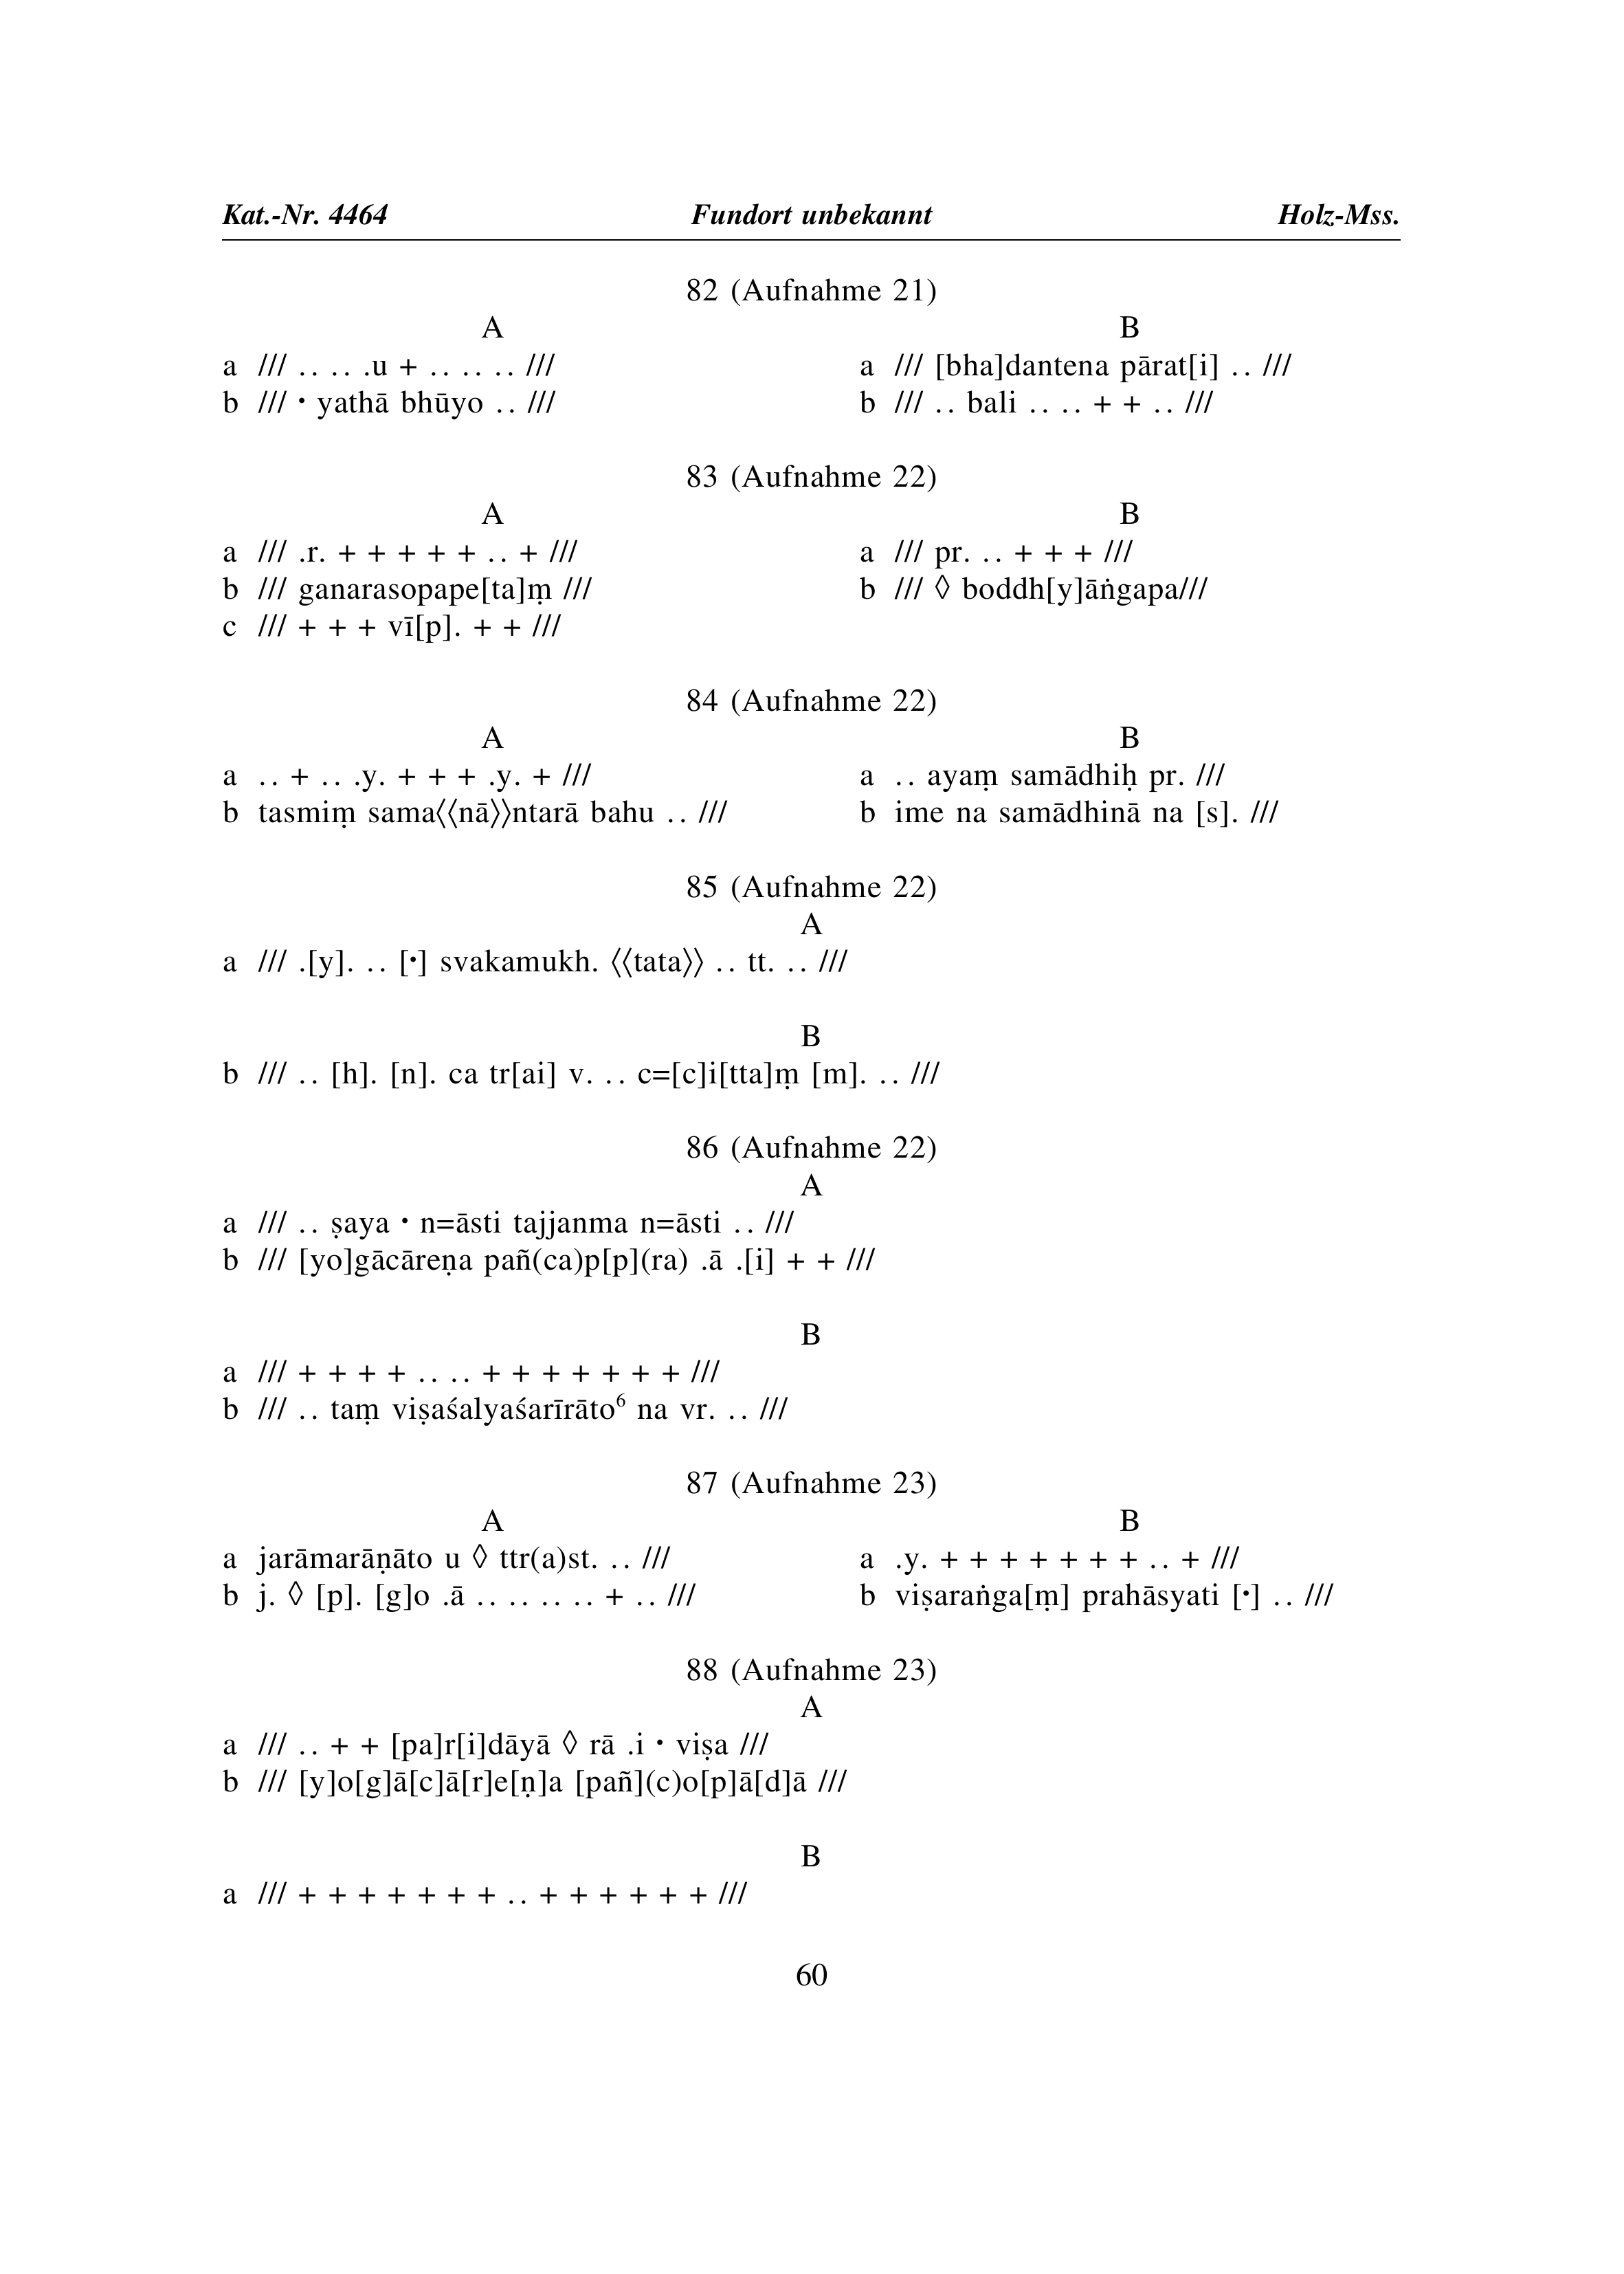 Kat.-Nr. 4464 Fundort unbekannt Holz-Mss.
82 (Aufnahme 21)
A
a /// .. .. .u + .. .. .. ///
b /// • yathā bhūyo .. ///
B
a /// [bha]dantena pārat[i] .. ///
b /// .. bali .. .. + + .. ///
83 (Aufnahme 22)
A
a /// .r. + + + + + .. + ///
b /// ganarasopape[ta]ṃ ///
c /// + + + vī[p]. + + ///
B
a /// pr. .. + + + ///
b /// ◊ boddh[y]āṅgapa///
84 (Aufnahme 22)
A
a .. + .. .y. + + + .y. + ///
b tasmiṃ sama⟨⟨nā⟩⟩ntarā bahu .. ///
B
a .. ayaṃ samādhiḥ pr. ///
b ime na samādhinā na [s]. ///
85 (Aufnahme 22)
A
a /// .[y]. .. [•] svakamukh. ⟨⟨tata⟩⟩ .. tt. .. ///
B
b /// .. [h]. [n]. ca tr[ai] v. .. c=[c]i[tta]ṃ [m]. .. ///
86 (Aufnahme 22)
A
a /// .. ṣaya • n=āsti tajjanma n=āsti .. ///
b /// [yo]gācāreṇa pañ(ca)p[p](ra) .ā .[i] + + ///
B
a /// + + + + .. .. + + + + + + + ///
b /// .. taṃ viṣaśalyaśarīrāto⁶ na vr. .. ///
87 (Aufnahme 23)
A
a jarāmarāṇāto u ◊ ttr(a)st. .. ///
b j. ◊ [p]. [g]o .ā .. .. .. .. + .. ///
B
a .y. + + + + + + + .. + ///
b viṣaraṅga[ṃ] prahāsyati [•] .. ///
88 (Aufnahme 23)
A
a /// .. + + [pa]r[i]dāyā ◊ rā .i • viṣa ///
b /// [y]o[g]ā[c]ā[r]e[ṇ]a [pañ](c)o[p]ā[d]ā ///
B
a /// + + + + + + + .. + + + + + + ///
60